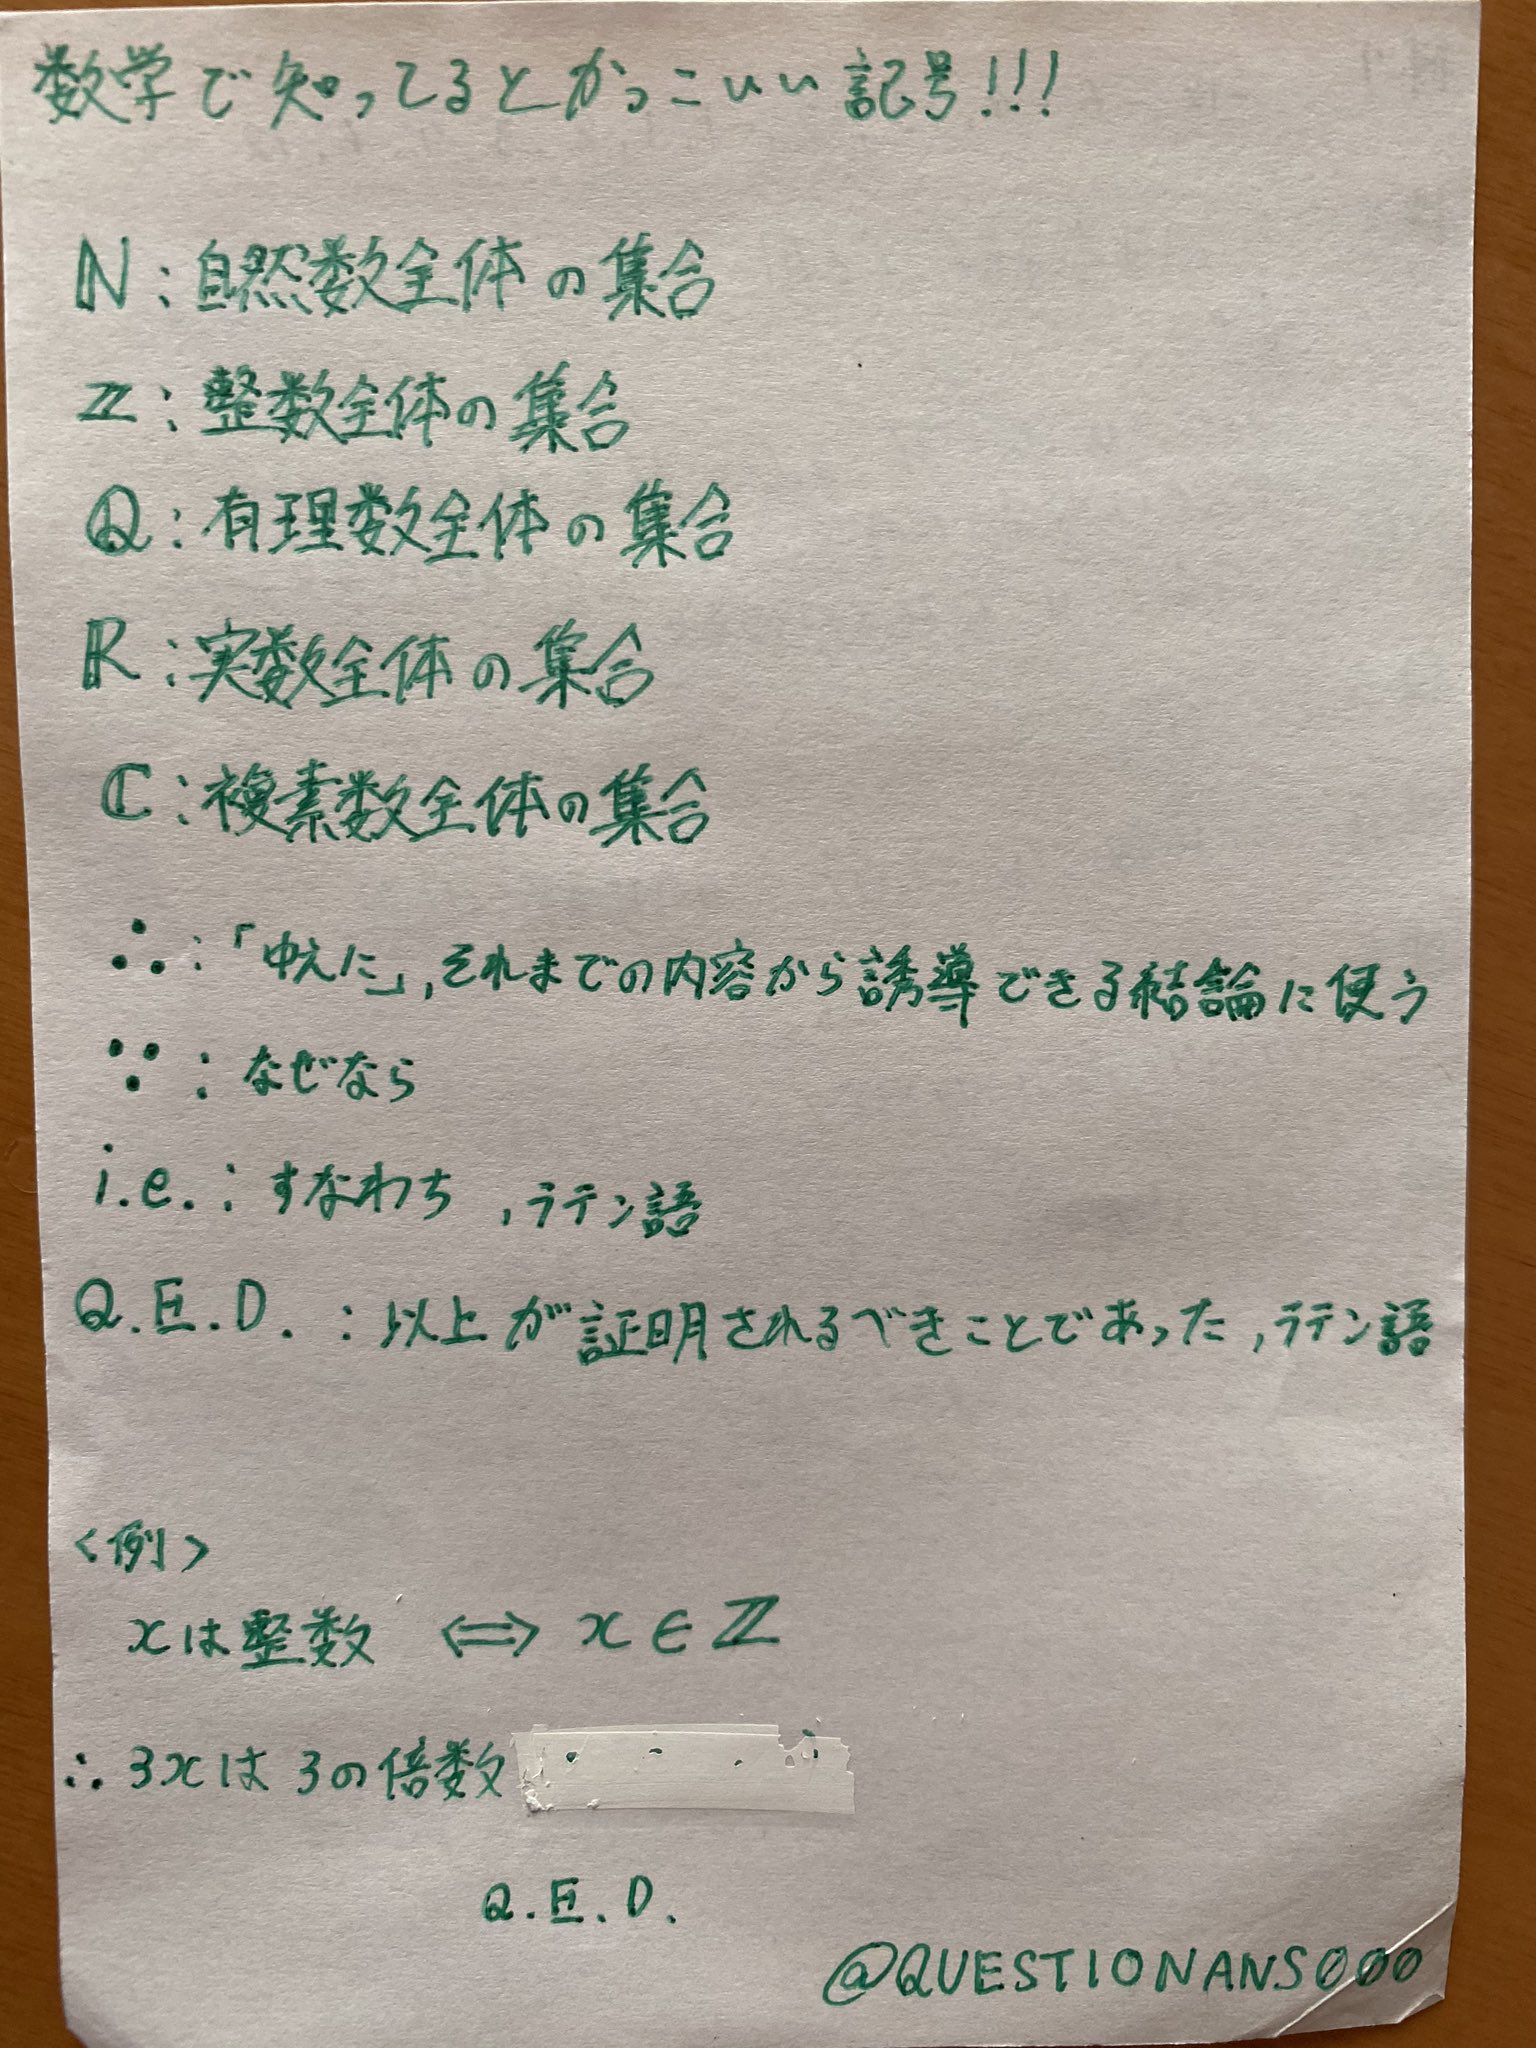 数学で知ってるとかっこいい記号!!!
ℕ:自然数全体の集合
ℤ:整数全体の集合
ℚ:有理数全体の集合
ℝ:実数全体の集合
ℂ:複素数全体の集合
∴:「ゆえに」,それまでの内容から誘導できる結論に使う
∵:なぜなら
i.e.:すなわち,ラテン語
Q.E.D.:以上が証明されるべきことであった,ラテン語
<例>
xは整数 ⇔ x∈ℤ
∴3xは3の倍数
Q.E.D.
@QUESTIONANS000